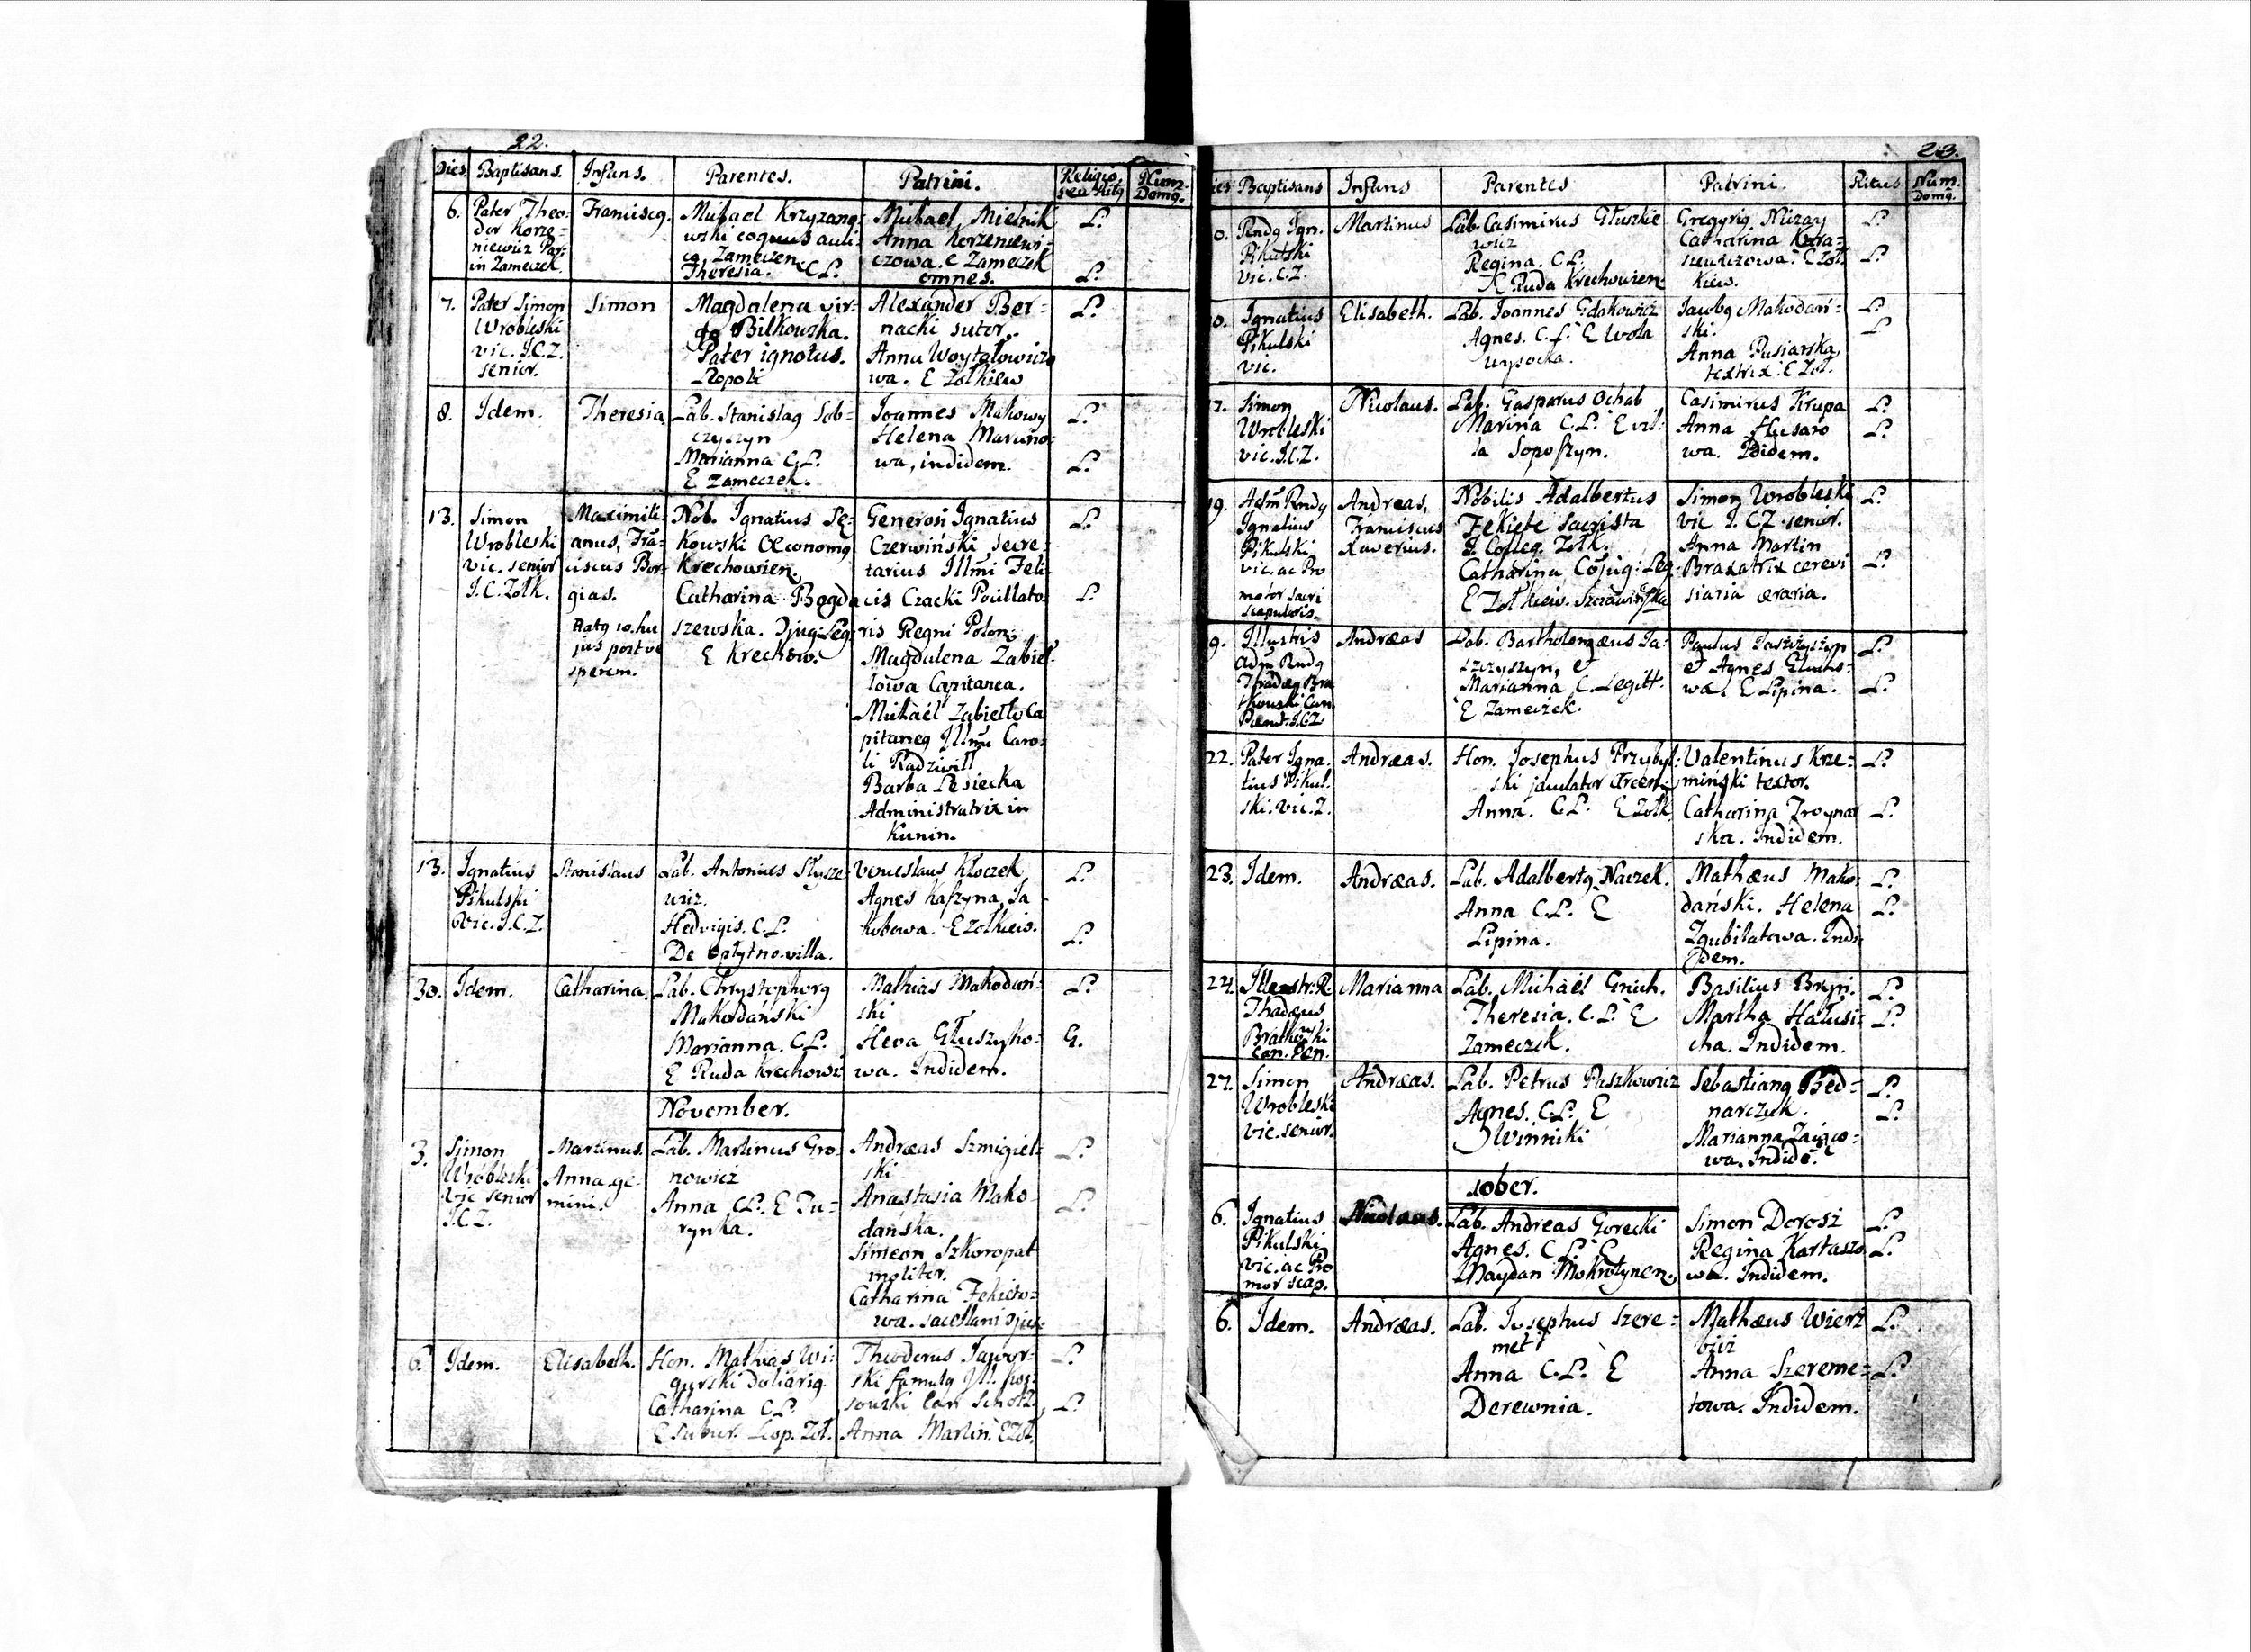 22.
Dies. Baptisans. Infans. Parentes. Patrini. Religio seu Ritq Num. Domq.
6. Pater Theo-
dor Korze-
niewicz Par:
in Zameczek.
Franciscq.
Michael Krzyzanq-
wski coquus auli-
cq Zameczen
Theresia. C L.
Michael Mielnik
Anna Korzeniewi-
czowa. E Zameczek
omnes.
L.
L.
7. Pater Simon
Wrobleski
vic. I.C.Z.
senior.
Simon
Magdalena vir-
go Bilkowska.
Pater ignotus.
Alexander Ber-
nacki sutor.
Anna Woytalowiczo
wa. E Zolkiew
L.
8. Idem.
Theresia
Lab. Stanislaq Sob-
czyszyn
Marianna C.L.
E Zameczek.
Joannes Makowy
Helena
wa, indidem.
L.
L.
13. Simon
Wrobleski
vic. senior
I.C. Zolk.
Maximili-
anus, Fra-
ciscus Bor-
gias.
Natq 10. hu
jus post ve
sperem.
Nob. Ignatius Pę-
kowski Œconomq
Krechowien.
Catharina Bogda
szewska. Cjug: Leg:
E Krechow.
Generosi Ignatius
Czerwiński Secre-
tarius Illmi Feli-
cis Czacki Pocillato-
ris Regni Polon:
Magdalena Zabieł-
lowa Capitanea.
Michaël Zabiełło Ca
pitaneq Illmi Caro-
li Radziwill
Barba Lesiecka
Administratrix in
Kunin.
L.
L.
13. Ignatius
Pikulski
Vic. I.C.Z.
Stanislaus
Lab. Antonius Słysze-
wicz.
Hedvigis. C.L.
De opłytno villa.
Venceslaus Kłoczek
Agnes Kaszyna, Ja
kobowa. E Zolkiew.
L.
L.
30. Idem.
Catharina
Lab. Chrystophorq
Makodański
Marianna. C.L.
E Ruda Krechowi
Mathias Makodań-
ski
Heva Głuszyko-
wa. Indidem.
L.
G.
November.
3. Simon
Wróbleski
vic senior
I.C.Z.
Martinus.
Anna ge-
mini.
Lab. Martinus Gro-
nowicz
Anna C.L. E Tu-
rynka.
Andræas Szmigiel-
ski
Anastasia Mako
dańska.
Simeon Szkoropat
molitor.
Catharina Fekieto-
wa. Sacellani Cjux.
L.
L.
6. Idem.
Elisabeth.
Hon. Mathias Wi-
gurski Doliariq.
Catharina C.L.
E Subur. Leop. Zoł.
Theodorus Jawor-
ski famulq Ill.
sowski Can
Anna Martin. E Zoł.
L.
L.
23.
Dies. Baptisans Infans Parentes Patrini. Ritus Num. Domq.
0. Rndq Ign.
Pikulski
vic. C.Z.
Martinus
Lab. Casimirus Głuszkie
wicz
Regina. C.L.
E Ruda Krechowien
Gregyriq Nizay
Catharina
szewiczowa. E Zoł-
kiew.
L.
L.
0. Ignatius
Pikulski
vic.
Elisabeth.
Lab. Joannes Gdakowicz
Agnes. C.L. E Wola
wysocka.
Jacobq Makodań-
ski.
Anna Pusiarska
textrix. E Zoł.
L.
L.
17. Simon
Wrobleski
vic. I.C.Z.
Nicolaus.
Lab. Gasparus Ochab
Marina C.L. E vil-
la Soposzyn.
Casimirus Krupa
Anna Husaro
wa. Ibidem.
L.
L.
19. Adm Rndq
Ignatius
Pikulski
vic. ac Pro
motor Sacri
Scapularis.
Andreas,
Franciscus
Xaverius.
Nobilis Adalbertus
Fekiete Sacrista
I. Colleg. Zołk.
Catharina Cojug: Leg:
E Zołkiew. Szczawińska
Simon Wrobleski
vic I.C.Z. senior.
Anna Martin
Braxatrix cerevi
siaria œraria.
L.
L.
9. Illustris
adm Rndq
Thadæq Bra
tkowski Can
Pænit. I.C.Z.
Andræas
Lab. Bartholomæus Ja-
szczyszyn, et
Marianna C. Legitt.
E Zameczek.
Paulus Jaszczyszyn
et Agnes
wa. E Lipina.
L.
L.
22. Pater Igna.
tius Pikul.
ski. Vic. Z.
Andræas.
Hon. Josephus Przybyl-
ski jaculator Arcen:
Anna. C.L. E Zołk
Valentinus Krze-
miński textor.
Catharina Troynar
ska. Indidem.
L.
L.
23. Idem.
Andræas.
Lab. Adalbertq Naczek.
Anna C.L. E
Lipina.
Mathæus Mako-
dański. Helena
Zgubilatowa. Indi-
dem.
L.
L.
24. Illustr. R
Thadæus
Bratkowski
Can. Pen.
Marianna
Lab. Michaël Gnich.
Theresia. C.L. E
Zameczek.
Basilius Bryn.
Martha Hałusi-
cha. Indidem.
L.
L.
27. Simon
Wrobleski
vic. senior.
Andræas.
Lab. Petrus Paszkowicz
Agnes. C.L. E
Winniki
Sebastianq Bed-
narczuk.
Marianna
wa. Indidē.
L.
L.
10ber.
6. Ignatius
Pikulski
vic. ac Pro
mor Scap.
Nicolaus.
Lab. Andreas Gorecki
Agnes. C.L. E
Maydan Mokrotynen.
Simon Dorosz
Regina Kartaszo
wa. Indidem.
L.
L.
6. Idem.
Andræas.
Lab. Josephus Szere-
met
Anna C.L. E
Derewnia.
Mathæus Wierz
bicz
Anna Szereme-
towa. Indidem.
L.
L.